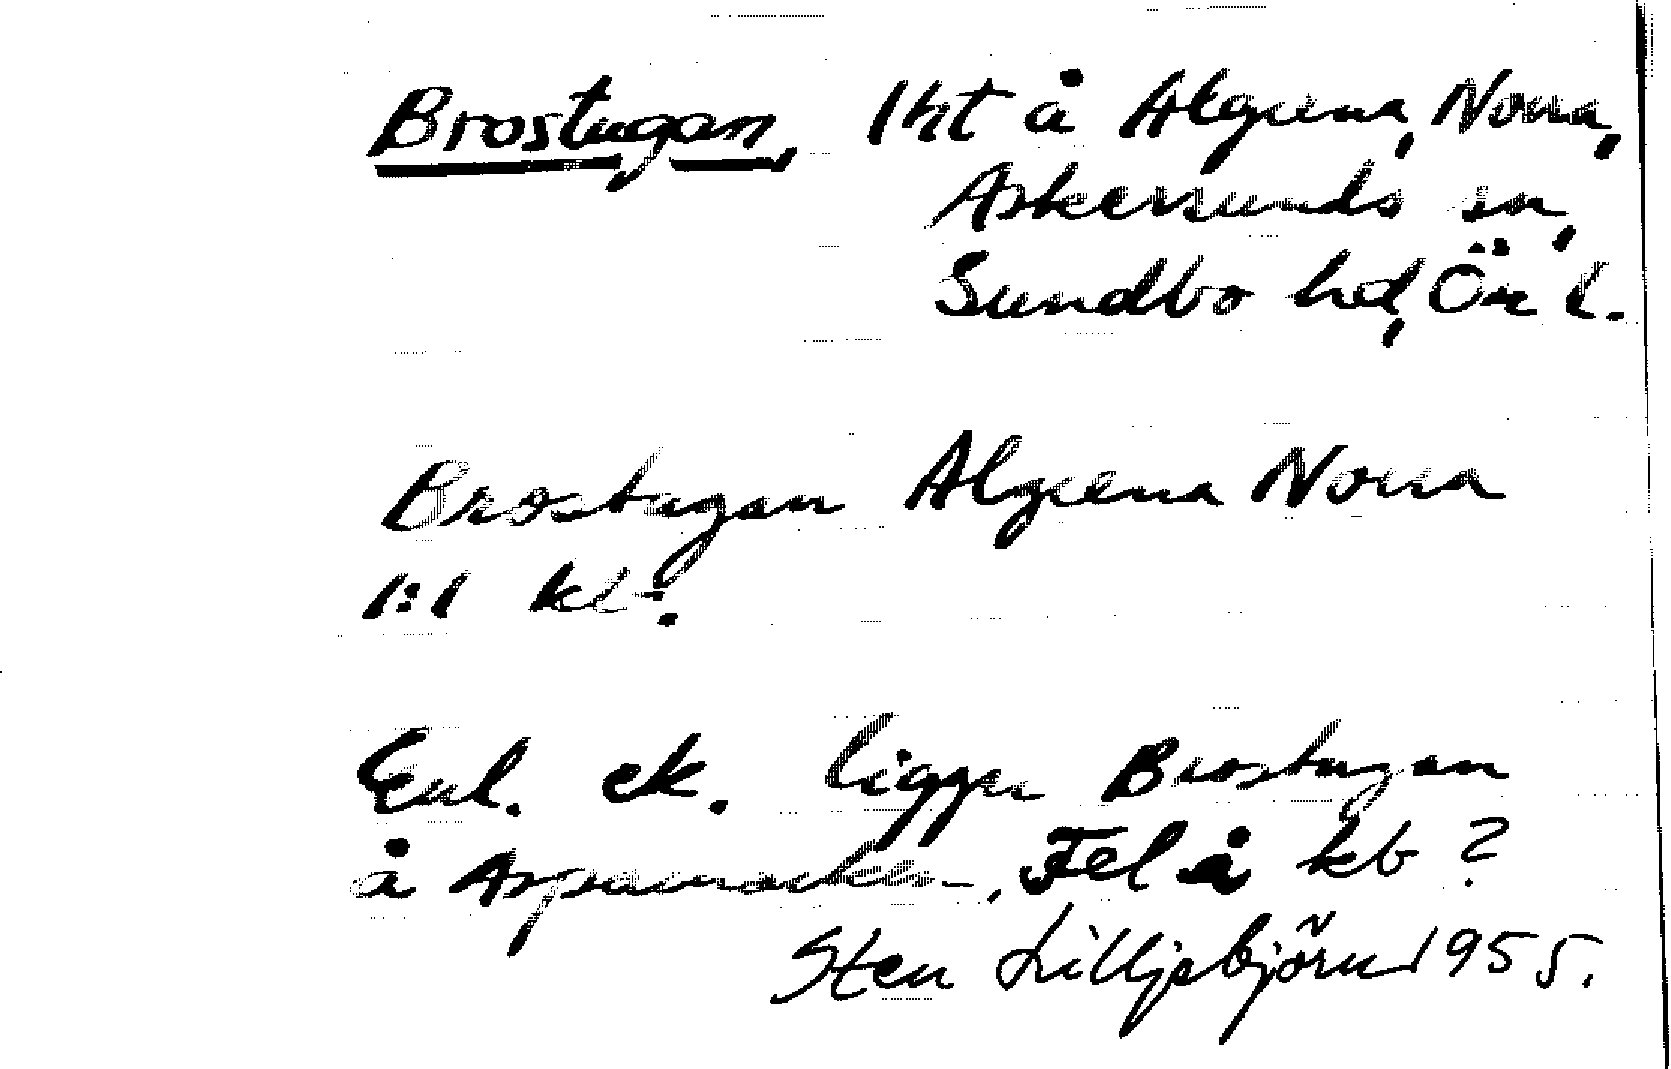 Brostugan, lht å Algrena, Norra,
Askersunds sn,
Sundbo hd, Ör l.
Brostugan Algrena Norra
1:1 kb.
Enl. ek. ligger Brostugan
å Aspamarken. Fel å kb?
Sten Lilljebjörn 1955.